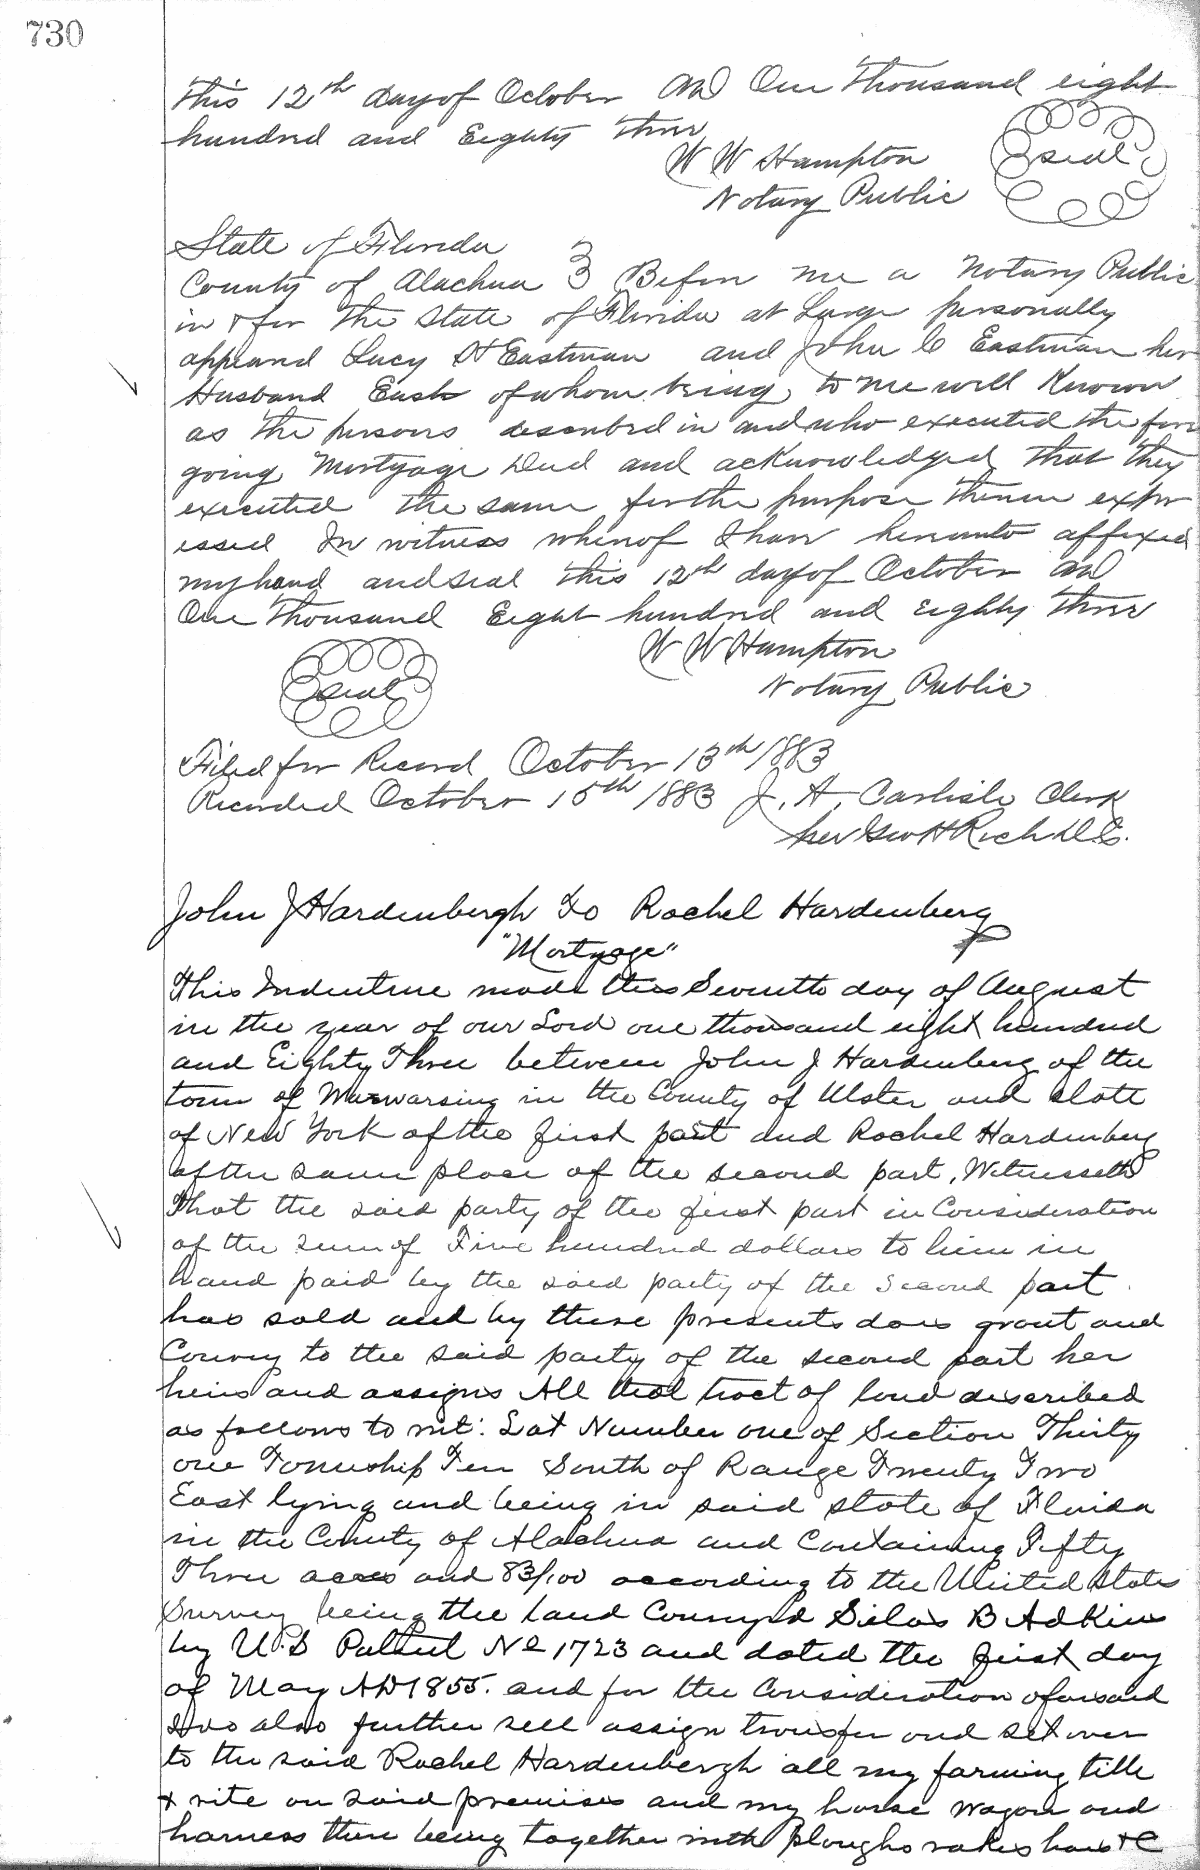 730
this 12th day of October AD One Thousand eight
hundred and Eighty three
W W Hampton
seal
Notary Public
State of Florida
County of Alachua } Before me a Notary Public
in & for the State of Florida at Large personally
appeared Lucy H Eastman and John C Eastman her
Husband Each of whom being to me well Known
as the persons described in and who executed the fore
going Mortgage Deed and acknowledged that they
executed the same for the purpose therein expr
essed In witness whereof I have hereunto affixed
my hand and seal this 12th day of October AD
One Thousand Eight hundred and eighty three
W W Hampton
seal
Notary Public
Filed for Record October 13th 1883
Recorded October 15th 1883 J. A. Carlisle Clerk
per Geo H Rich D.C.
John J Hardenbergh to Rachel Hardenberg
"Mortgage"
This Indenture made this Seventh day of August
in the year of our Lord one thousand eight hundred
and Eighty Three between John J Hardenberg of the
town of Wawarsing in the County of Ulster and State
of New York of the first part and Rachel Hardenberg
of the same place of the second part, Witnesseth
That the said party of the first part in Consideration
of the sum of Five hundred dollars to him in
hand paid by the said party of the second part
has sold and by these presents does grant and
Convey to the said party of the second part her
heirs and assigns All that tract of land described
as follows to wit: Lot Number one of Section Thirty
one Township Ten South of Range Twenty Two
East lying and being in said state of Florida
in the County of Alachua and Containing Fifty
Three acres and 83/100 according to the United States
Survey being the land Conveyed Silas B Adkins
by U.S Pattent No 1723 and dated the first day
of May AD 1855. and for the Consideration aforesaid
I do also further sell assign transfer and set over
to the said Rachel Hardenbergh all my farming title
& rite on said premises and my horse wagon and
harness there being together with ploughs rakes hoes &C